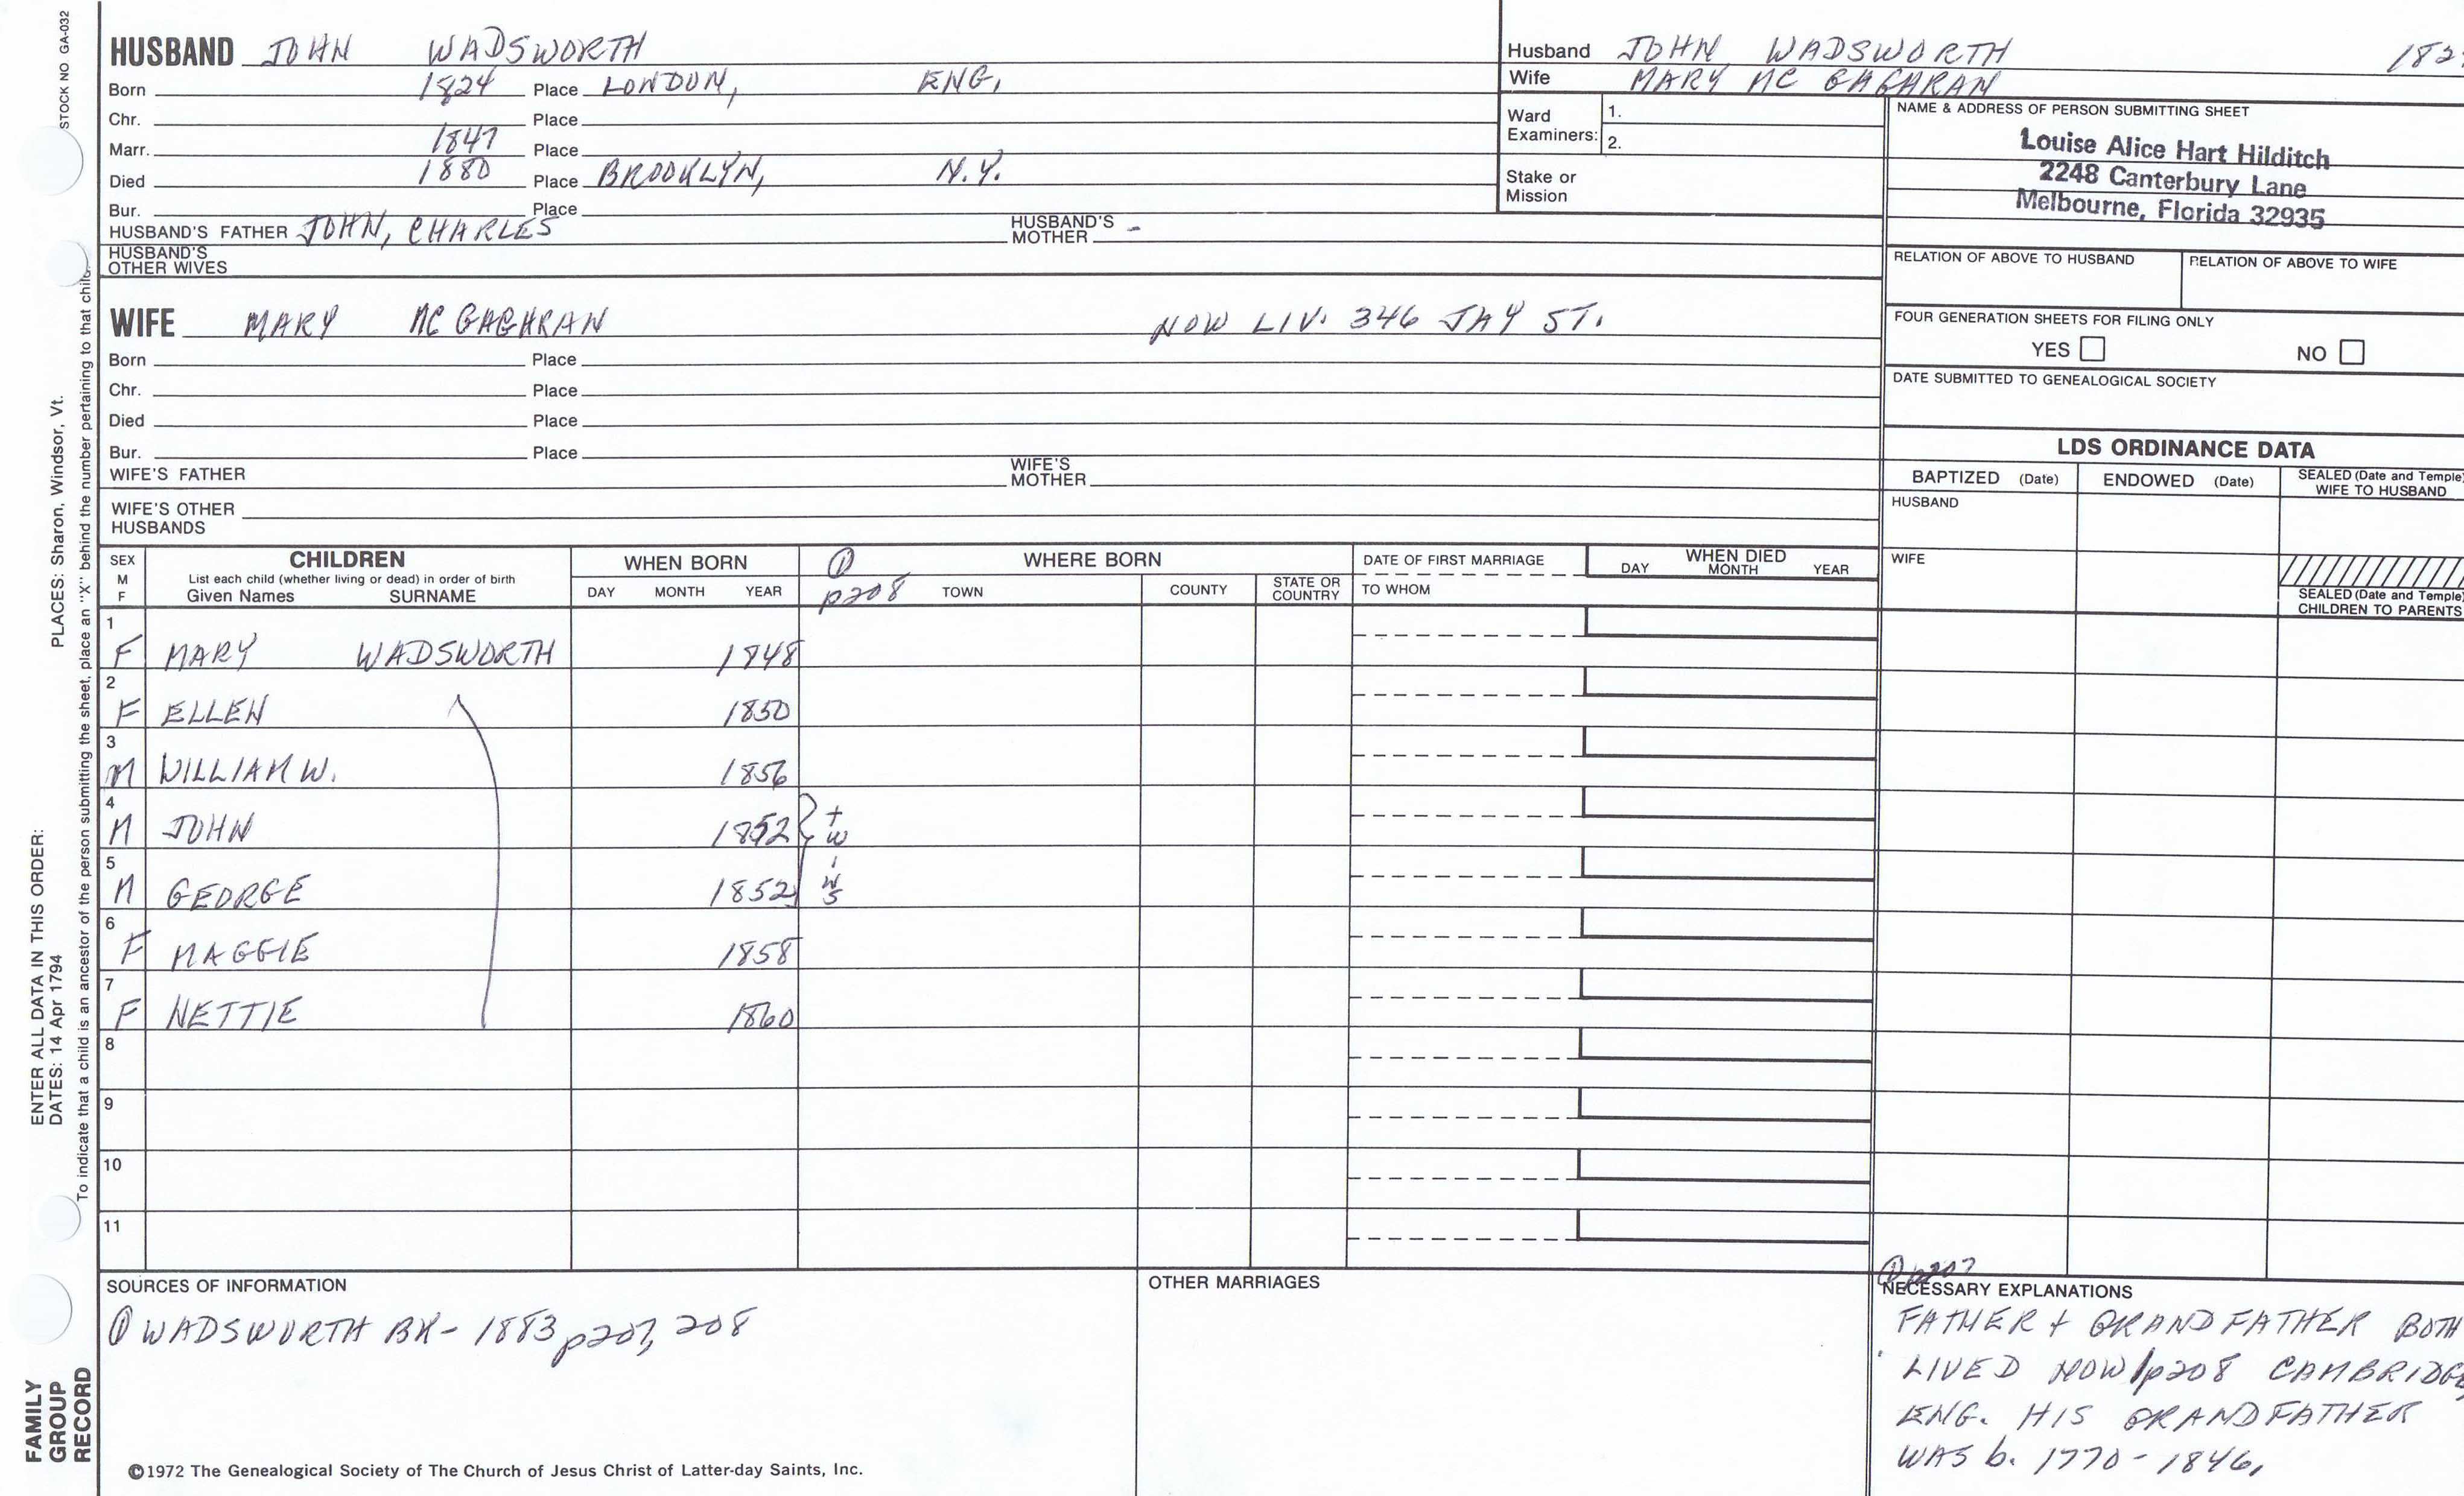 STOCK NO GA-032
HUSBAND JOHN WADSWORTH
Born 1824 Place LONDON, ENG.
Chr. Place
Marr. 1847 Place
Died 1880 Place BROOKLYN, N.Y.
Bur. Place
HUSBAND'S FATHER JOHN, CHARLES HUSBAND'S MOTHER -
HUSBAND'S OTHER WIVES
WIFE MARY MC GAGHRAN NOW LIV. 346 JAY ST.
Born Place
Chr. Place
Died Place
Bur. Place
WIFE'S FATHER WIFE'S MOTHER
WIFE'S OTHER HUSBANDS
Husband JOHN WADSWORTH
Wife MARY MC GAGHRAN
Ward Examiners: 1.
2.
Stake or Mission
NAME & ADDRESS OF PERSON SUBMITTING SHEET
Louise Alice Hart Hilditch
2248 Canterbury Lane
Melbourne, Florida 32935
RELATION OF ABOVE TO HUSBAND RELATION OF ABOVE TO WIFE
FOUR GENERATION SHEETS FOR FILING ONLY
YES NO
DATE SUBMITTED TO GENEALOGICAL SOCIETY
LDS ORDINANCE DATA
BAPTIZED (Date) ENDOWED (Date) SEALED (Date and Temple) WIFE TO HUSBAND
HUSBAND
WIFE
SEALED (Date and Temple) CHILDREN TO PARENTS
SEX M F
CHILDREN
List each child (whether living or dead) in order of birth
Given Names SURNAME
WHEN BORN
DAY MONTH YEAR
① p208
WHERE BORN
TOWN COUNTY STATE OR COUNTRY
DATE OF FIRST MARRIAGE
TO WHOM
WHEN DIED
DAY MONTH YEAR
1 F MARY WADSWORTH 1848
2 F ELLEN 1850
3 M WILLIAM W. 1856
4 M JOHN 1852 twins
5 M GEORGE 1852
6 F MAGGIE 1858
7 F NETTIE 1860
8
9
10
11
SOURCES OF INFORMATION
① WADSWORTH BK- 1883 p207, 208
OTHER MARRIAGES
① p207
NECESSARY EXPLANATIONS
FATHER + GRANDFATHER BOTH
LIVED NOW/p208 CAMBRIDGE,
ENG. HIS GRANDFATHER
WAS b. 1770-1846.
©1972 The Genealogical Society of The Church of Jesus Christ of Latter-day Saints, Inc.
FAMILY GROUP RECORD
ENTER ALL DATA IN THIS ORDER:
DATES: 14 Apr 1794 PLACES: Sharon, Windsor, Vt.
To indicate that a child is an ancestor of the person submitting the sheet, place an "X" behind the number pertaining to that child.